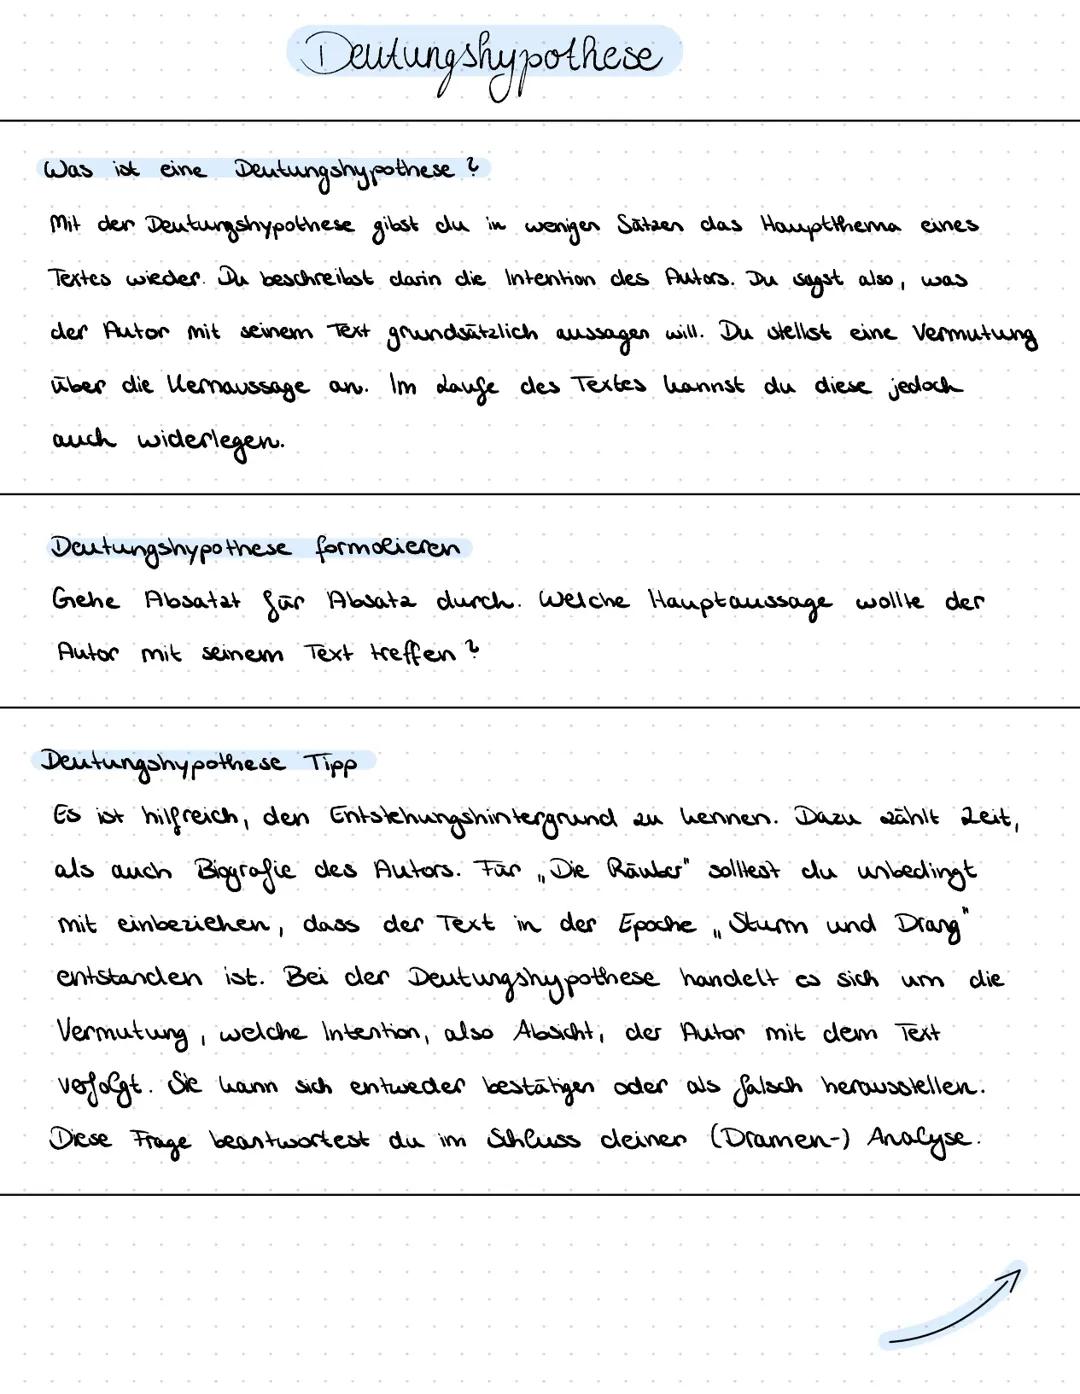 Deutungshypothese
Was ist eine Deutungshypothese?
Mit der Deutungshypothese gibst du in wenigen Sätzen das Hauptthema eines
Textes wieder. Du beschreibst darin die Intention des Autors. Du sagst also, was
der Autor mit seinem Text grundsätzlich aussagen will. Du stellst eine Vermutung
über die Kernaussage an. Im Laufe des Textes kannst du diese jedoch
auch widerlegen.
Deutungshypothese formolieren
Gehe Absatzt für Absatz durch. Welche Hauptaussage wollte der
Autor mit seinem Text treffen?
Deutungshypothese Tipp
Es ist hilfreich, den Entstehungshintergrund zu kennen. Dazu zählt Zeit,
als auch Biografie des Autors. Für „Die Räuber" solltest du unbedingt
mit einbeziehen, dass der Text in der Epoche „Sturm und Drang"
entstanden ist. Bei der Deutungshypothese handelt es sich um die
Vermutung, welche Intention, also Absicht, der Autor mit dem Text
verfolgt. Sie kann sich entweder bestätigen oder als falsch herausstellen.
Diese Frage beantwortest du im Schluss deiner (Dramen-) Analyse.